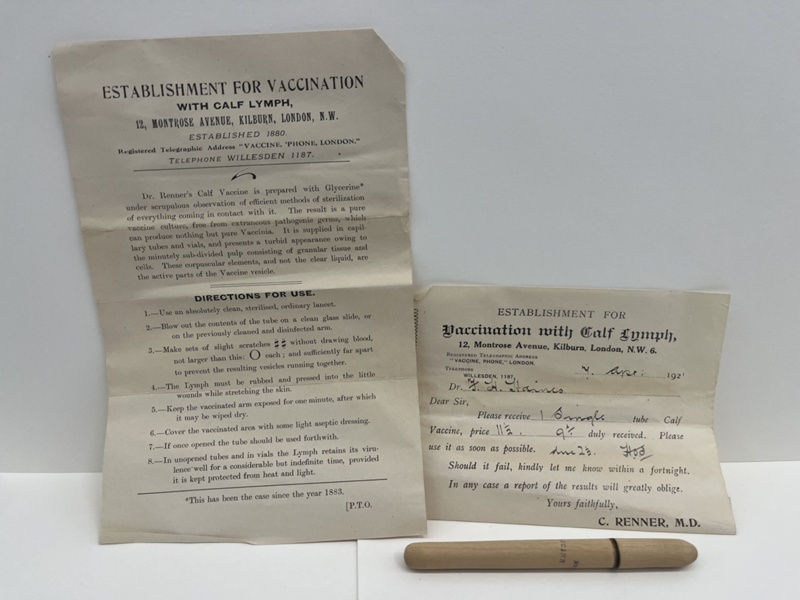 ESTABLISHMENT FOR VACCINATION
WITH CALF LYMPH,
12, MONTROSE AVENUE, KILBURN, LONDON, N.W.
ESTABLISHED 1880.
Registered Telegraphic Address "VACCINE, 'PHONE, LONDON."
TELEPHONE WILLESDEN 1187.
Dr. Renner's Calf Vaccine is prepared with Glycerine*
under scrupulous observation of efficient methods of sterilization
of everything coming in contact with it. The result is a pure
vaccine culture, free from extraneous pathogenic germs, which
can produce nothing but pure Vaccinia. It is supplied in capil-
lary tubes and vials, and presents a turbid appearance owing to
the minutely sub-divided pulp consisting of granular tissue and
cells. These corpuscular elements, and not the clear liquid, are
the active parts of the Vaccine vesicle.
DIRECTIONS FOR USE.
1.—Use an absolutely clean, sterilised, ordinary lancet.
2.—Blow out the contents of the tube on a clean glass slide, or
on the previously cleaned and disinfected arm.
3.—Make sets of slight scratches without drawing blood,
not larger than this: O each; and sufficiently far apart
to prevent the resulting vesicles running together.
4.—The Lymph must be rubbed and pressed into the little
wounds while stretching the skin.
5.—Keep the vaccinated arm exposed for one minute, after which
it may be wiped dry.
6.—Cover the vaccinated area with some light aseptic dressing.
7.—If once opened the tube should be used forthwith.
8.—In unopened tubes and in vials the Lymph retains its viru-
lence well for a considerable but indefinite time, provided
it is kept protected from heat and light.
*This has been the case since the year 1883.
[P.T.O.
ESTABLISHMENT FOR
Vaccination with Calf Lymph,
12, Montrose Avenue, Kilburn, London, N.W. 6.
REGISTERED TELEGRAPHIC ADDRESS
"VACCINE, PHONE, LONDON."
TELEPHONE
WILLESDEN, 1187.
7. Apr. 192
Dr. F. H. Haines
Dear Sir,
Please receive 1 Single tube Calf
Vaccine, price 11½. duly received. Please
use it as soon as possible.
Should it fail, kindly let me know within a fortnight.
In any case a report of the results will greatly oblige.
Yours faithfully,
C. RENNER, M.D.